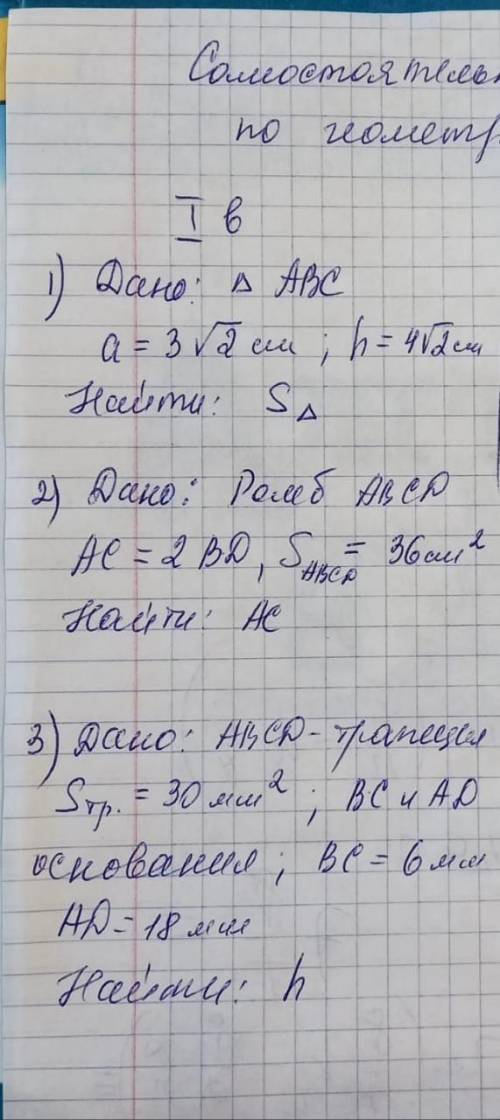 Самостоятельн
по геометр
I в
1) Дано: △ ABC
a = 3√2 см ; h = 4√2 см
Найти: S△
2) Дано: Ромб ABCD
AC = 2 BD, S ABCD = 36 см²
Найти: AC
3) Дано: ABCD - трапеция
Sтр. = 30 мм² ; BC и AD
основания ; BC = 6 мм
AD = 18 мм
Найти: h